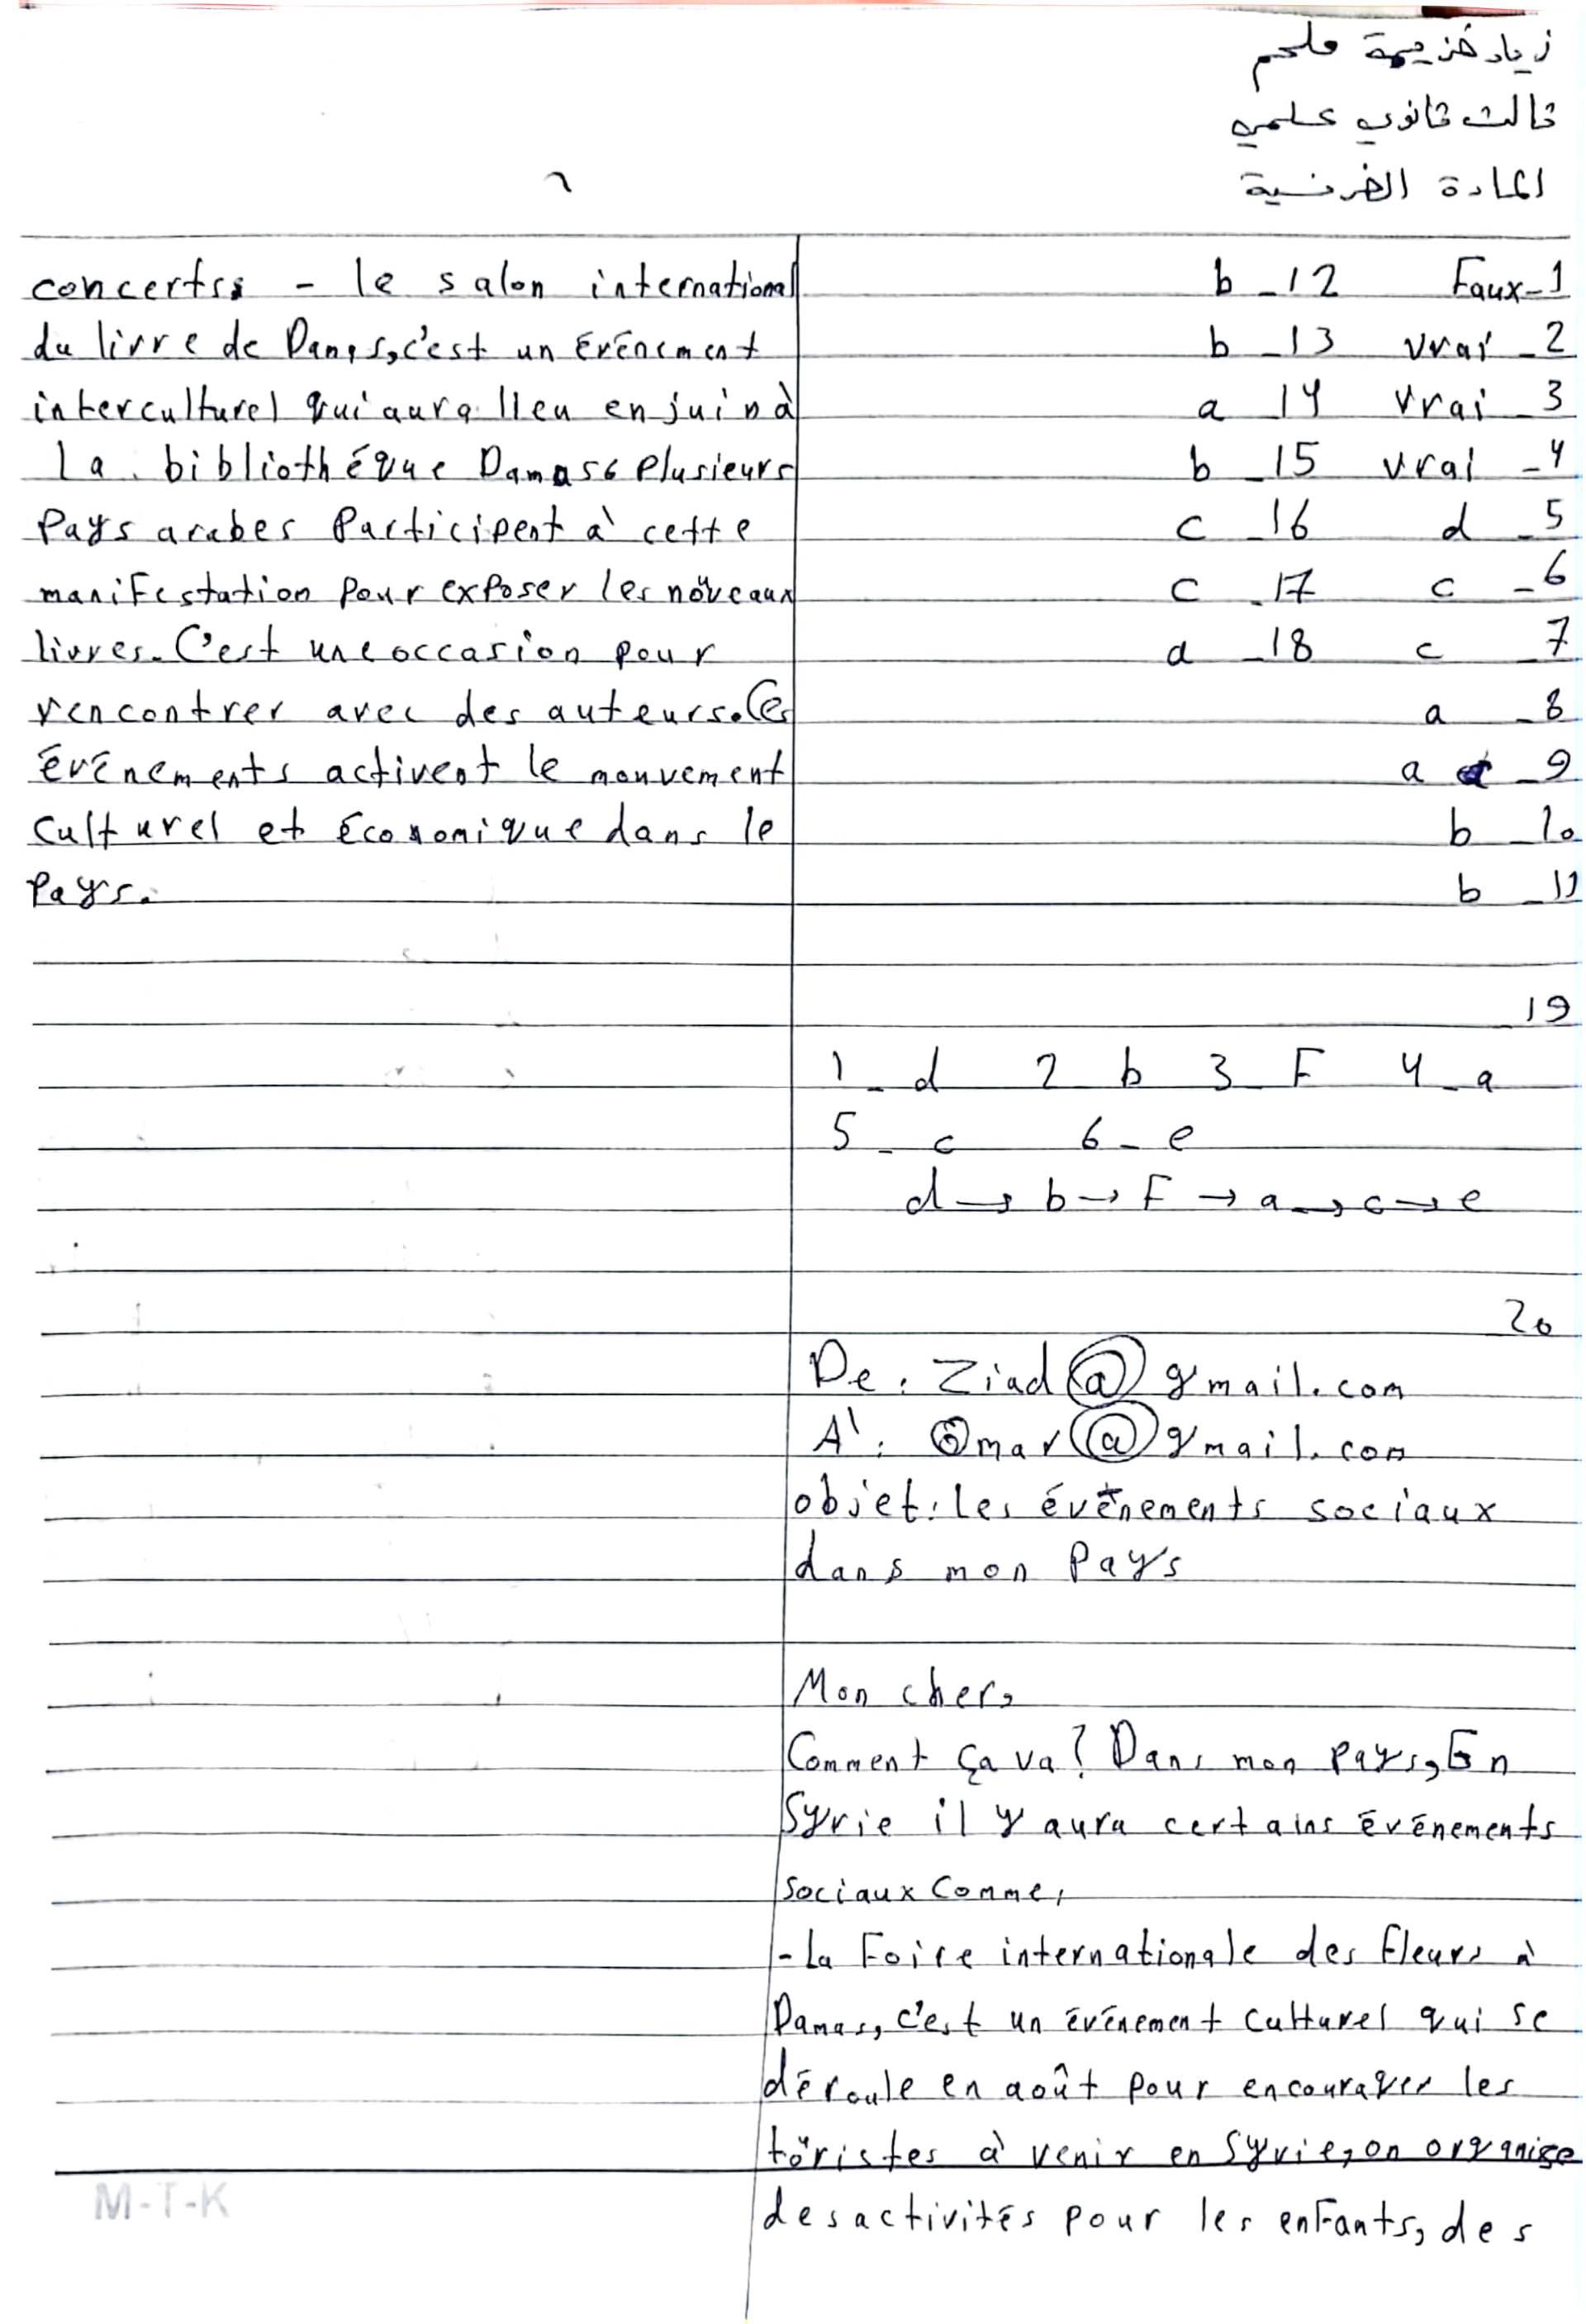 زياد خزيمة ملحم
ثالث ثانوي علمي
المادة الفرنسية
Faux_1
vrai_2
vrai_3
vrai_4
d_5
c_6
c_7
a_8
a_9
b_10
b_11
b_12
b_13
a_14
b_15
c_16
c_17
a_18
19
1_d 2_b 3_F 4_a
5_c 6_e
d→b→F→a→c→e
20
De: Ziad@gmail.com
A': Omar@gmail.com
objet: les événements sociaux
dans mon Pays
Mon cher,
Comment ça va? Dans mon pays, En
Syrie il y aura certains événements
sociaux Comme:
-La Foire internationale des fleurs à
Damas, c'est un événement culturel qui se
déroule en août pour encourager les
töristes à venir en Syrie, on organise
des activités pour les enfants, des
concerts. - le salon international
du livre de Damas, c'est un événement
interculturel qui aura lieu en juin à
La bibliothéque Damass plusieurs
Pays arabes Participent à cette
manifestation pour exposer les növeaux
livres. C'est une occasion pour
rencontrer avec des auteurs. Ces
événements activent le mouvement
culturel et économique dans le
Pays.
M-T-K